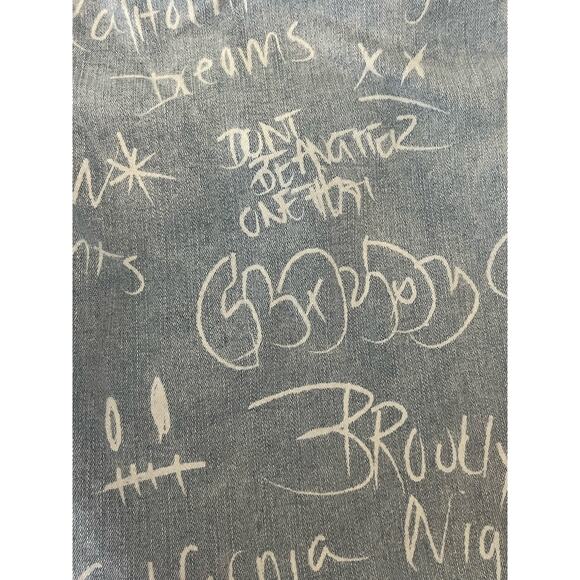 California
Dreams xx
DONT
BE ANOTHER
ONE
N*
nts
BROOKLY
Nig
California